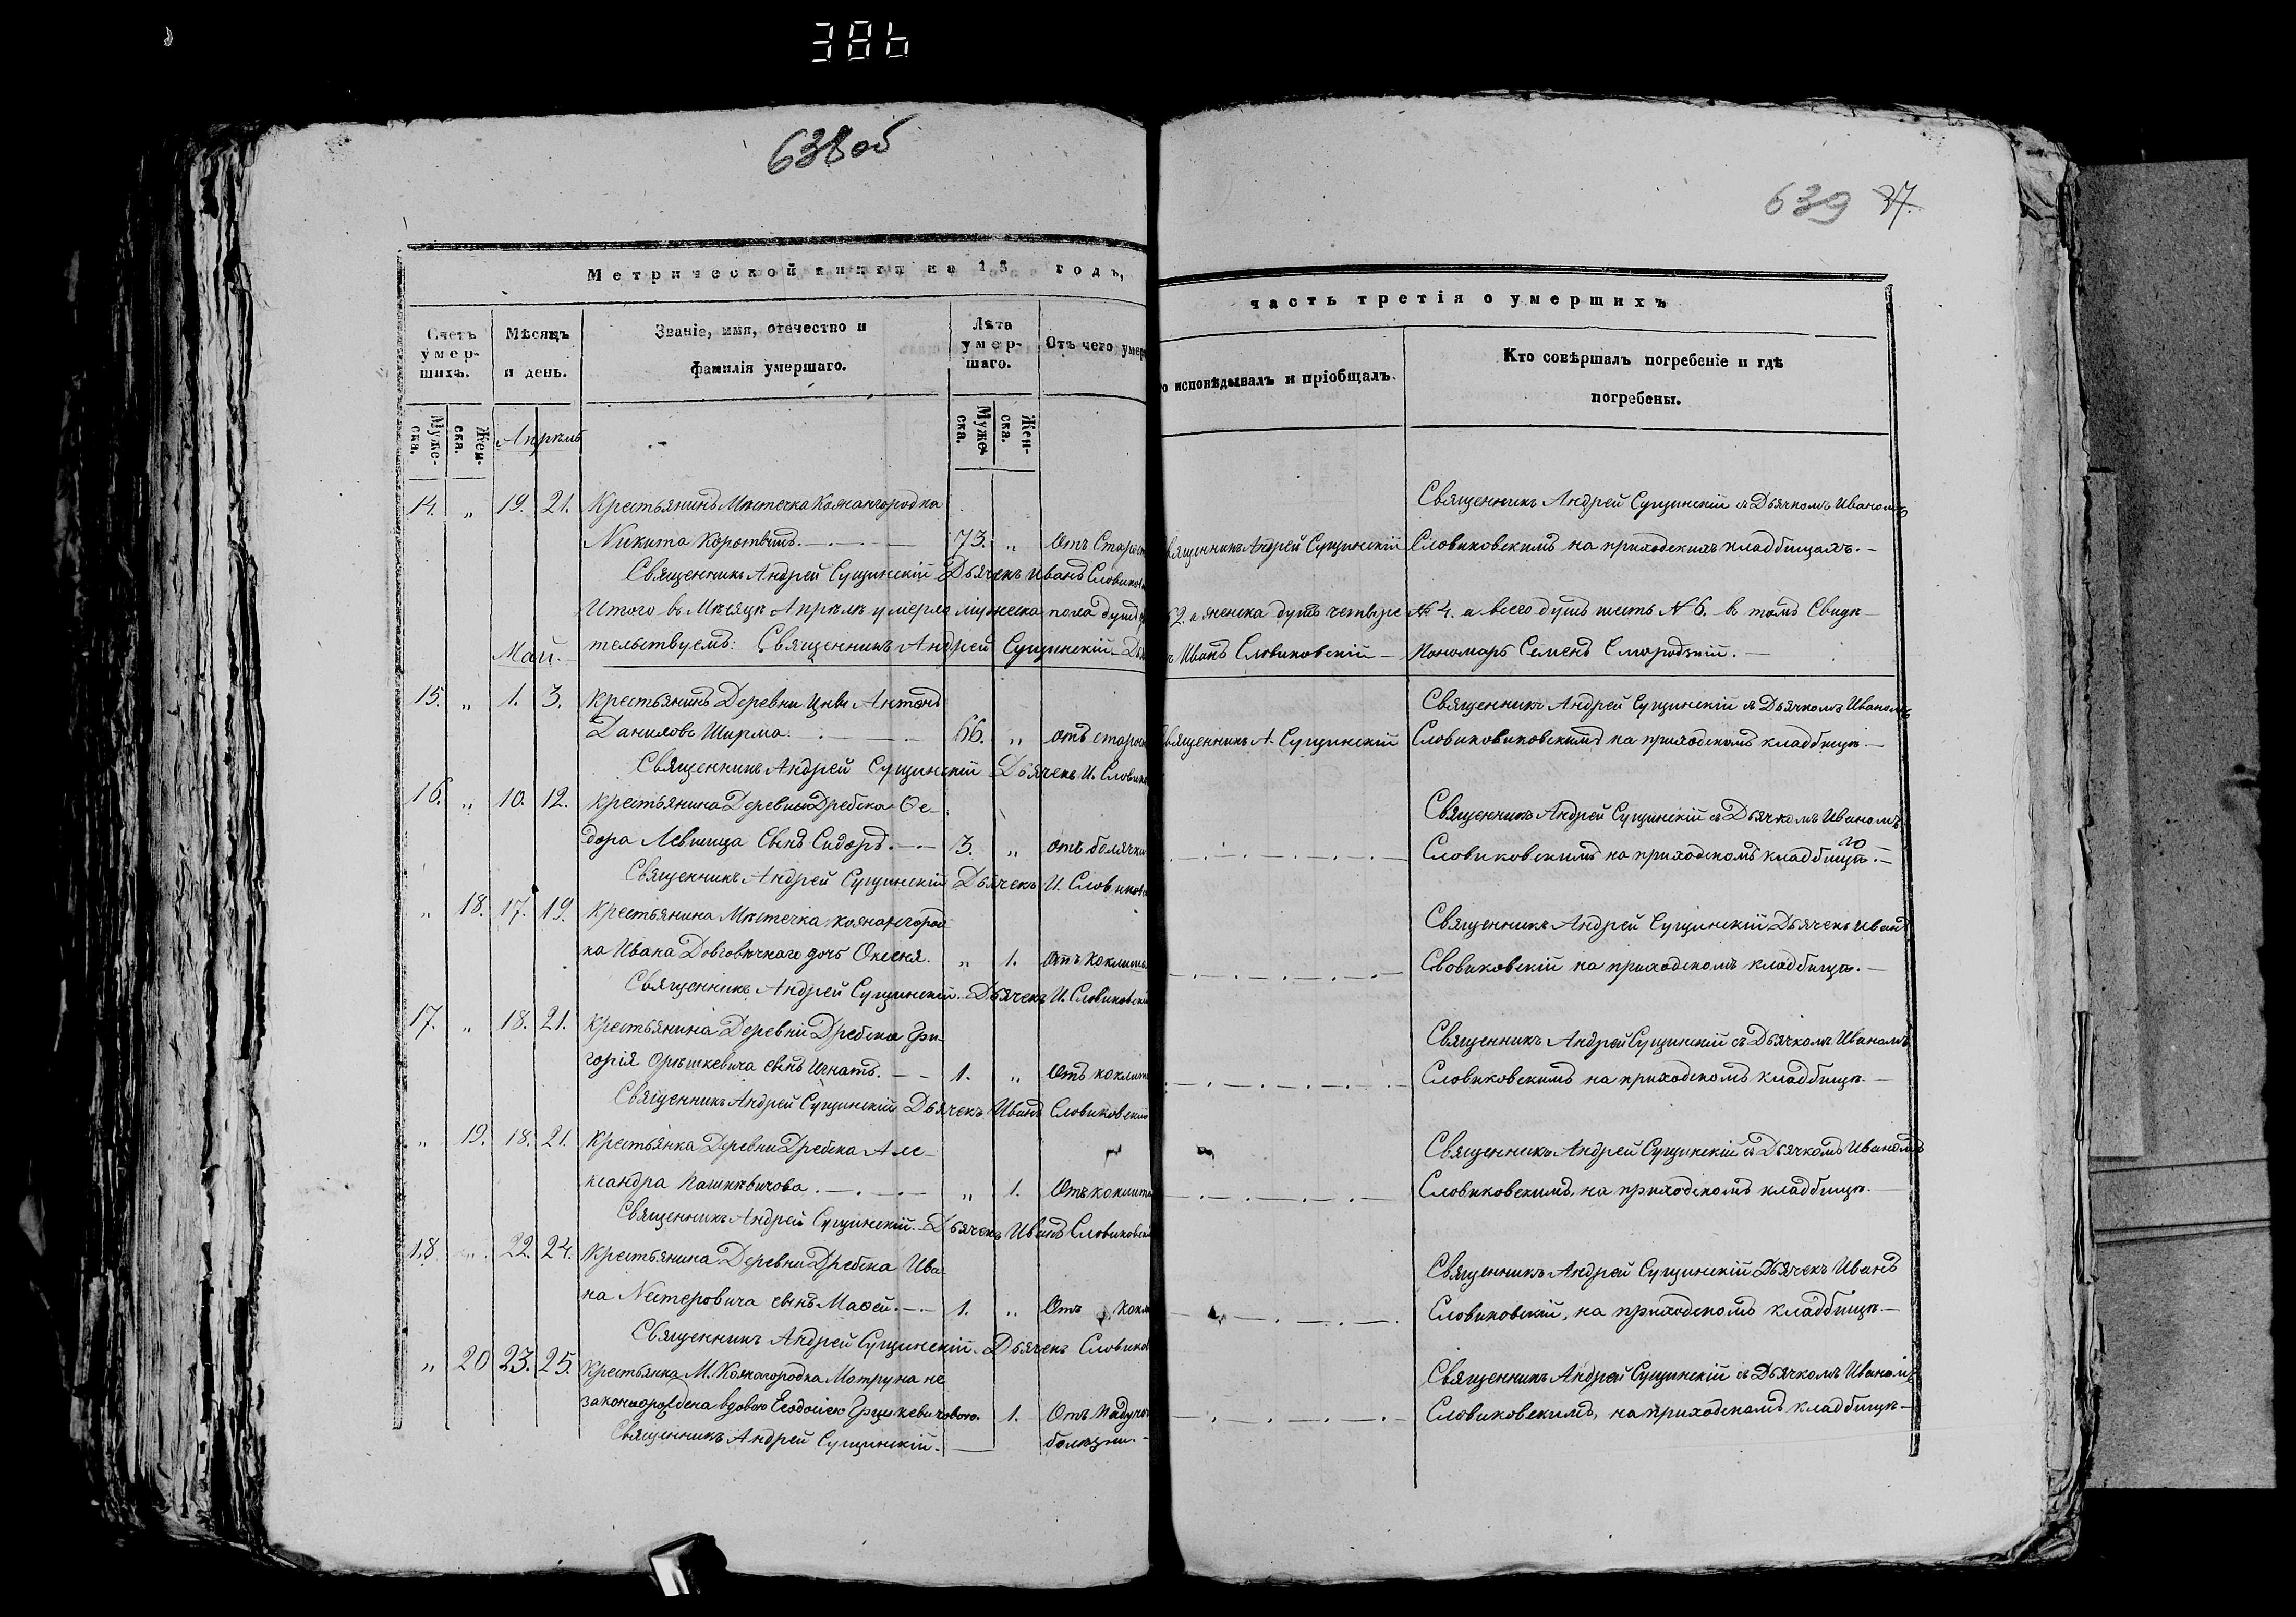 386
638об
639 37.
Метрической книги на 18 годъ,
часть третія о умершихъ
Счетъ умер-шихъ.
Мѣсяцъ и день.
Званіе, имя, отечество и фамилія умершаго.
Лѣта умер-шаго.
Отъ чего умер
о исповѣдывалъ и пріобщалъ.
Кто совѣршалъ погребеніе и гдѣ погребены.
Муже-ска.
Жен-ска.
Муже-ска.
Жен-ска.
Апрѣль
14. „ 19. 21. Крестьянинъ Мѣстечка Кожангородка Священникъ Андрей Сущинскій съ Дьячкомъ Иваномъ
Никита Коротышъ. 73. „ Отъ Старос вященникъ Андрей Сущинскій Словиковскимъ на приходскихъ кладбищахъ.
Священникъ Андрей Сущинскій Дьячекъ Иванъ Словиков
Итого въ Мѣсяцѣ Апрѣлѣ умерло мужеска пола душъ 2. а женска душъ четыре № 4. а всего душъ шесть № 6. в томъ Свидѣ-
тельствуемъ: Священникъ Андрей Сущинскій Иванъ Словиковскій Пономарь Семенъ Смородскій.
Май.
15. „ 1. 3. Крестьянинъ Деревни Цны Антонъ Священникъ Андрей Сущинскій съ Дьячкомъ Иваномъ
Даниловъ Ширма. 66. „ отъ старос вященникъ А. Сущинскій Словиковиковскимъ на приходскомъ кладбищѣ.
Священникъ Андрей Сущинскій Дьячекъ И. Слови
16. „ 10. 12. Крестьянина Деревни Дребска Ѳе- Священникъ Андрей Сущинскій съ Дьячкомъ Иваномъ
дора Левшица Сынъ Сидоръ. 3. „ отъ болячки Словиковскимъ на приходскомъ кладбищѣ.
Священникъ Андрей Сущинскій Дьячекъ И. Словиков
„ 18. 17. 19. Крестьянина Мѣстечка Кожангород- Священникъ Андрей Сущинскій Дьячекъ Иванъ
ка Ивана Довговѣчнаго дочь Оксеня. „ 1. Отъ коклюша Словиковскій на приходскомъ кладбищѣ.
Священникъ Андрей Сущинскій. Дьячекъ И. Словиковскі
17. „ 18. 21. Крестьянина Деревни Дребска Гри- Священникъ Андрей Сущинскій съ Дьячкомъ Иваномъ
горія Орѣшкевича сынъ Игнатъ. 1. „ Отъ коклюш Словиковскимъ на приходскомъ кладбищѣ.
Священникъ Андрей Сущинскій Дьячекъ Иванъ Словиковскій
„ 19. 18. 21. Крестьянка Деревни Дребска Але- Священникъ Андрей Сущинскій съ Дьячкомъ Иваномъ
ксандра Пашкевичова. „ 1. Отъ коклюш Словиковскимъ, на приходскомъ кладбищѣ.
Священникъ Андрей Сущинскій. Дьячекъ Иванъ Словиковскі
18. „ 22. 24. Крестьянина Деревни Дребска Ива- Священникъ Андрей Сущинскій Дьячекъ Иванъ
на Нестеровича сынъ Маѳей. 1. „ Отъ кокл Словиковскій, на приходскомъ кладбищѣ.
Священникъ Андрей Сущинскій. Дьячекъ Словиков
„ 20 23. 25. Крестьянка М. Кожангородка Мотруна не Священникъ Андрей Сущинскій съ Дьячкомъ Иваномъ
законорождена вдовою Ѳеодосіею Грицкевичовою. 1. Отъ Падуч Словиковскимъ, на приходскомъ кладбищѣ.
Священникъ Андрей Сущинскій. болѣзни.